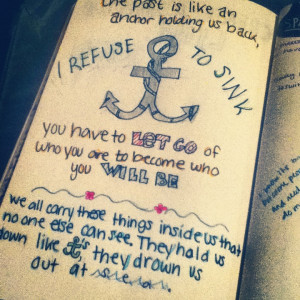 the past is like an
anchor holding us back,
I REFUSE TO SINK
you have to LET GO of
who you are to become who
you WILL BE
we all carry these things inside us that
no one else can see. They hold us
down like
they drown us
out at